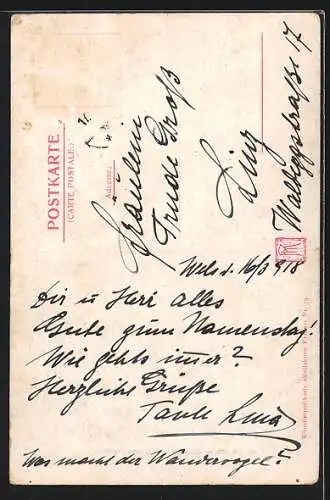 POSTKARTE
(CARTE POSTALE)
Adresse:
Fräulein
Trude Groß
Linz
Walteggstraße 17
Wels d. 16/3 918
Dir u Herr alles
Gute zum Namenstag!
Wie gehts immer?
Herzliche Grüße
Tante
Was macht der Wandervogel?